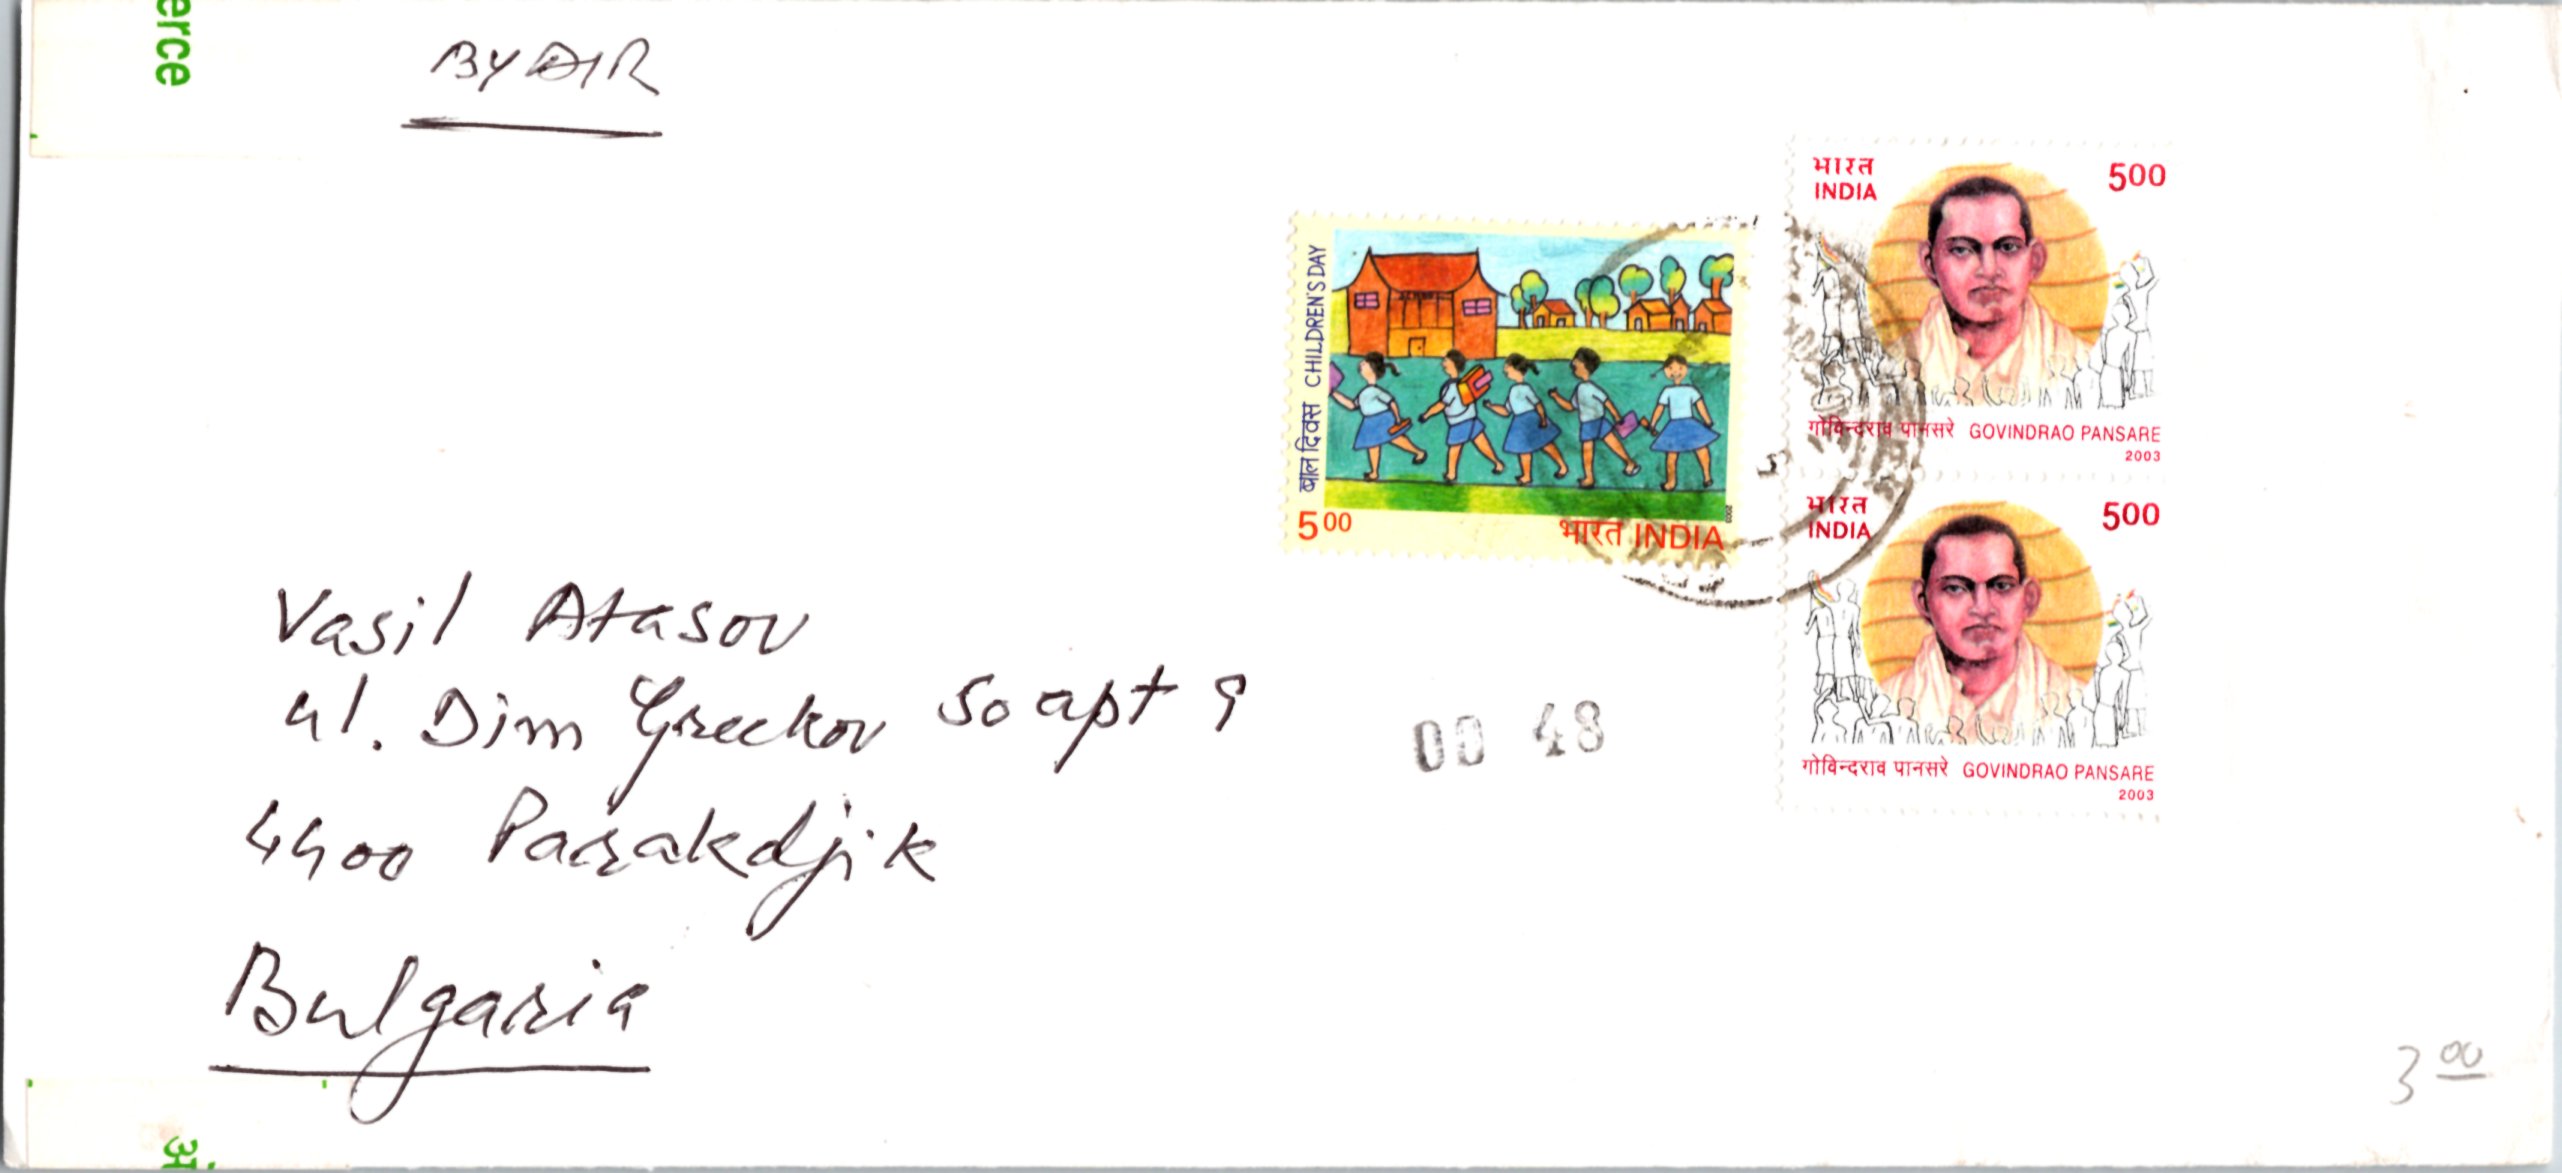 erce
BY AIR
बाल दिवस CHILDREN'S DAY
500
भारत INDIA
2003
भारत
INDIA
500
गोविन्दराव पानसरे GOVINDRAO PANSARE
2003
भारत
INDIA
500
गोविन्दराव पानसरे GOVINDRAO PANSARE
2003
Vasil Atasov
ul. Dim Greckov 50 apt 9
4400 Pasakdjik
Bulgaria
00 48
3 00